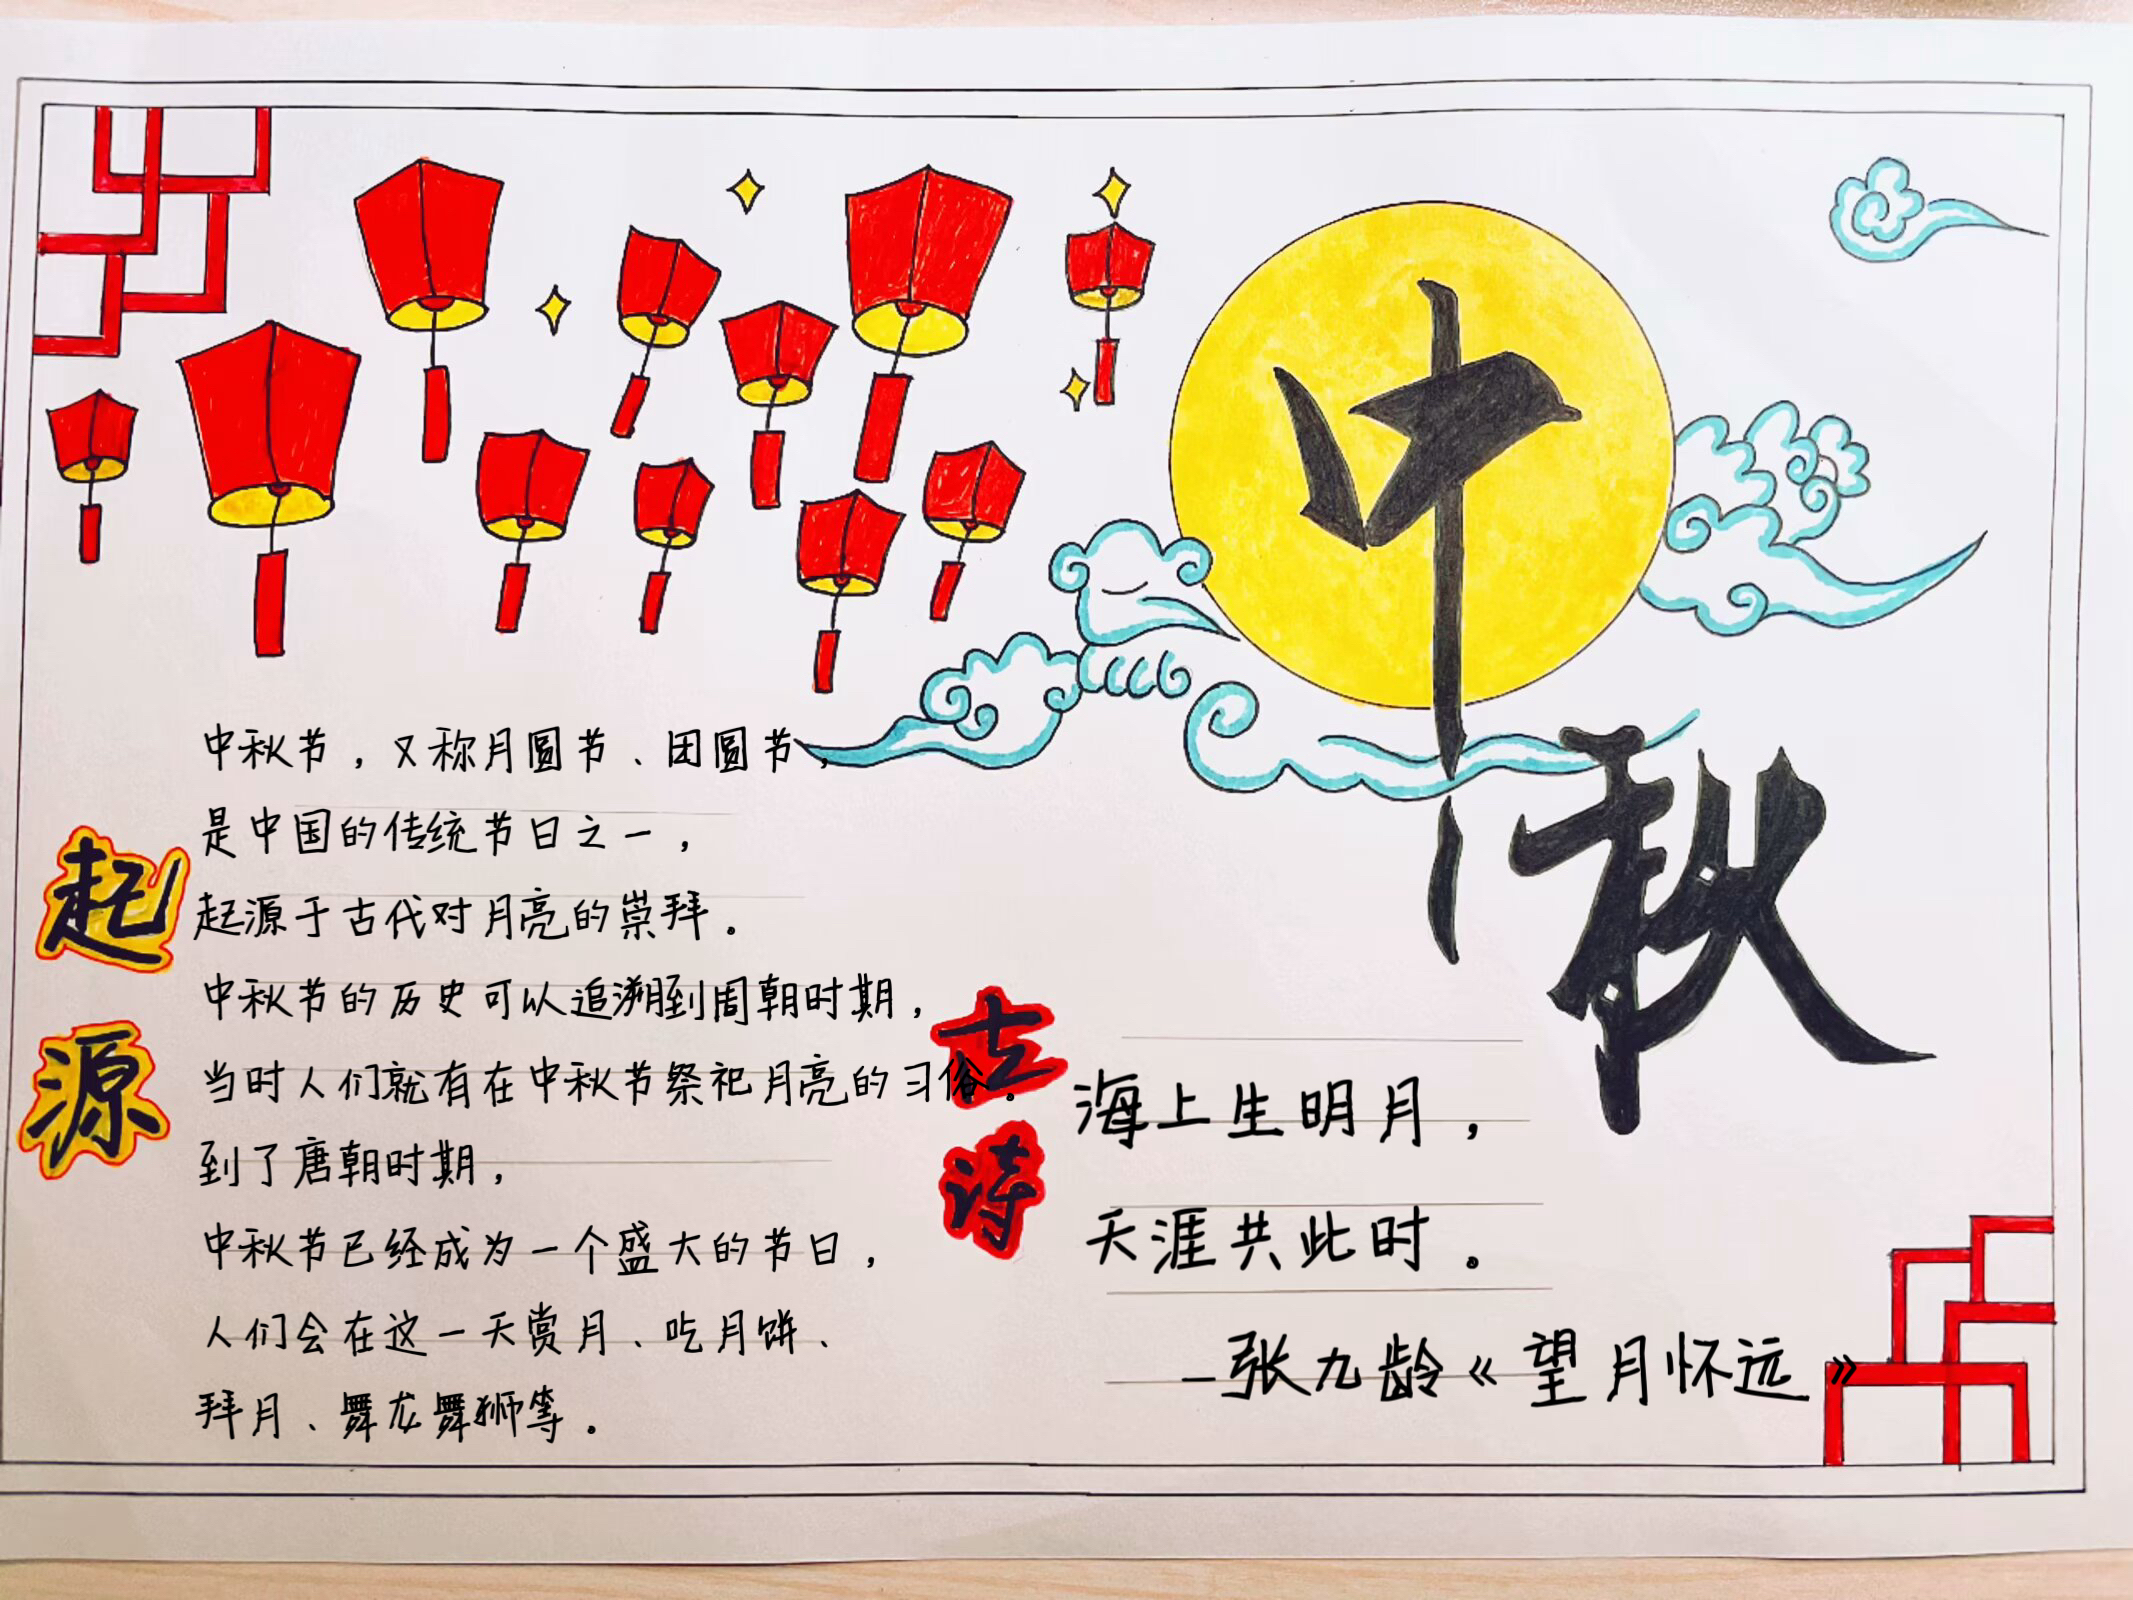 中秋
起源
中秋节，又称月圆节、团圆节，
是中国的传统节日之一，
起源于古代对月亮的崇拜。
中秋节的历史可以追溯到周朝时期，
当时人们就有在中秋节祭祀月亮的习俗。
到了唐朝时期，
中秋节已经成为一个盛大的节日，
人们会在这一天赏月、吃月饼、
拜月、舞龙舞狮等。
古诗
海上生明月，
天涯共此时。
—张九龄《望月怀远》